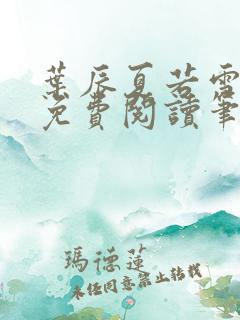 葉辰夏若雪
免費閱讀筆
瑪德蓮
未經同意禁止轉載